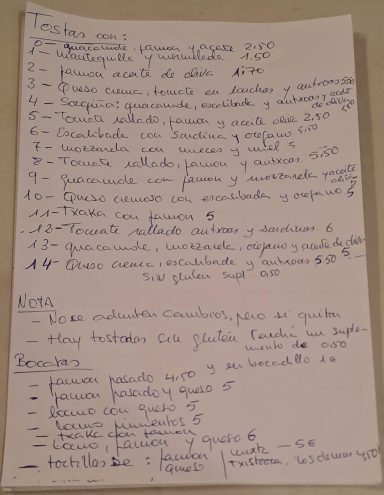 Tostas con:
0- guacamole, jamon y aceite 2,50
1- mantequilla y mermelada 1,50
2- jamon aceite de oliva 1,70
3- Queso crema, tomate en lonchas y antxoas 5,50
4- Sorgiña: guacamole, escalibada y antxoas y aceite de oliva
5- Tomate rallado, jamon y aceite oliva 2,80
6- Escalibada con Sardina y oregano 5,50
7- mozzarela con nueces y miel 5
8- Tomate rallado, jamon y antxoas 5,50
9- guacamole con jamon y mozzarela y aceite oliva
10- Queso cremoso con escalibada y oregano 5
11- Txaka con jamon 5
12- Tomate rallado antxoas y sardinas 6
13- guacamole, mozzarela, oregano y aceite de oliva 5
14- Queso crema, escalibade y antxoas 5.50
Sin gluten supl 0,50
NOTA:
- No se admiten cambios, pero si quitar
- Hay tostadas sin gluten tendrá un suple-
mento de 0,50
y en bocadillo 1€
Bocatas
- jamon pasado 4,50
- jamon pasado y queso 5
- lomo con queso 5
- lomo pimientos 5
- txaka con jamon
- Lomo, jamon y queso 6
- tortillas de: jamon
queso
txistorra. los demas 4,50
- 5€